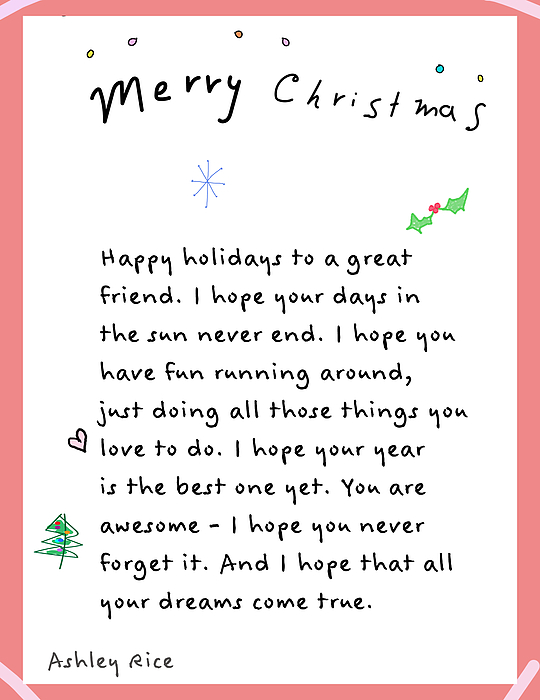 Merry Christmas
Happy holidays to a great
friend. I hope your days in
the sun never end. I hope you
have fun running around,
just doing all those things you
love to do. I hope your year
is the best one yet. You are
awesome - I hope you never
forget it. And I hope that all
your dreams come true.
Ashley Rice